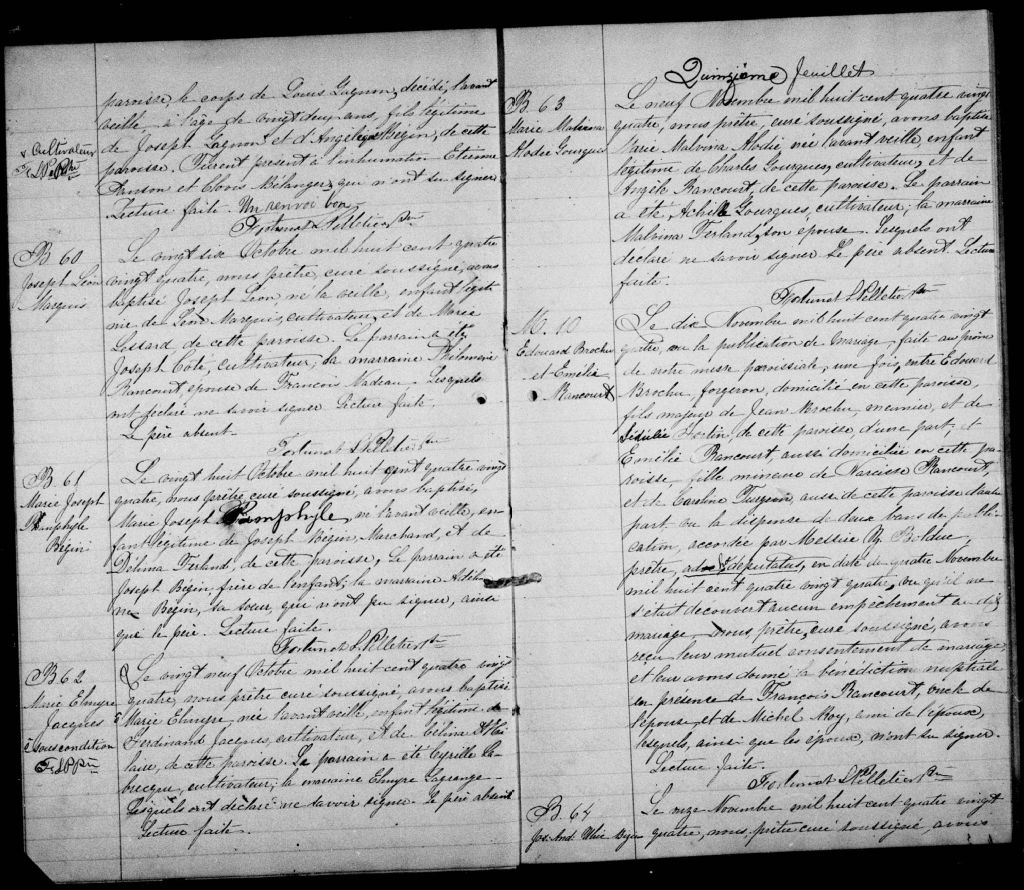 paroisse le corps de Louis Gagnon, décédé, l'avant
veille à l'age de vingt deux ans, fils légitime
de Joseph Gagnon + et d'Angèle Bégin, de cette
paroisse. Furent présent à l'inhumation Etienne
et Clovis Bélanger qui n'ont su signer
Lecture faite. Un renvoi bon
Fortunat S Pelletier Ptre
+ Cultivateur
B 60
Joseph Léon
Marquis
Le vingt six Octobre mil huit cent quatre
vingt quatre, nous prêtre, curé soussigné, avons
baptisé Joseph Léon, né la veille, enfant légiti
me de Léon Marquis, cultivateur, et de Marie
Lessard de cette paroisse. Le parrain a été
Joseph Côté, cultivateur; la marraine Philomène
Rancourt, épouse de François Nadeau. Lesquels
ont déclaré ne savoir signer Lecture faite.
Le père absent.
Fortunat S Pelletier Ptre
B 61
Marie Joseph
Pamphyle
Bégin
Le vingt huit Octobre mil huit cent quatre vingt
quatre, nous prêtre, curé soussigné, avons baptisé,
Marie Joseph Pamphyle, né l'avant veille, en
fant légitime de Joseph Bégin, Marchand, et de
Délima Ferland, de cette paroisse. Le parrain a été
Joseph Bégin, frère de l'enfant; la marraine
Begin, sa soeur, qui n'ont pu signer, ainsi
que le père. Lecture faite.
Fortunat S Pelletier Ptre
B 62
Marie Elmyre
Jacques
sous condition
F. S. P Ptre
Le vingt neuf Octobre mil huit cent quatre vingt
quatre, nous prêtre curé soussigné, avons baptisé
Marie Elmyre, née l'avant veille, enfant légitime de
Ferdinand Jacques, cultivateur, et de Céline St Hi
laire, de cette paroisse. Le parrain a été Cyrille La
brecque, cultivateur; la marraine Elmyre Lagrange
Lesquels ont déclaré ne savoir signer. Le père absent
Lecture faite.
Quinzième feuillet
B 63
Marie Malvina
Alodie Gourgues
Le neuf Novembre mil huit cent quatre vingt
quatre, nous prêtre, curé soussigné, avons baptisé
Marie Malvina Alodie, née l'avant veille, enfant
légitime de Charles Gourgues, cultivateur, et de
Angèle Rancourt, de cette paroisse. Le parrain
a été Achille Gourgues, cultivateur; la marraine
Malvina Ferland, son épouse. Lesquels ont
déclaré ne savoir signer. Le père absent. Lecture
faite.
Fortunat S Pelletier Ptre
M. 10
Edouard Brochu
et Emélie
Rancourt
Le dix Novembre mil huit cent quatre vingt
quatre, vu la publication de mariage faite au prône
de notre messe paroissiale, une fois, entre Edouard
Brochu, forgeron, domicilié en cette paroisse,
fils majeur de Jean Brochu, meunier, et de
Sédulie Fortin, de cette paroisse, d'une part; et
Emélie Rancourt aussi domiciliée en cette pa
roisse, fille mineure de Narcisse Rancourt,
et de Caroline Turgeon aussi de cette paroisse d'autre
part vu la dispense de deux bans de publi
cation, accordée par Messire Bolduc,
prêtre, ad deputatus, en date du quatre Novembre
mil huit cent quatre vingt quatre, vu qu'il ne
s'était découvert aucun empêchement au dit
mariage, Nous prêtre, curé soussigné, avons
reçu leur mutuel consentement de mariage,
et leur avons donné la bénédiction nuptiale
en présence de François Rancourt, oncle de
l'épouse, et de Michel Roy, ami de l'époux,
lesquels, ainsi que les époux, n'ont su signer.
Lecture faite.
Fortunat S Pelletier Ptre
B. 64
Jos. And. Ulric Begin
Le onze Novembre mil huit cent quatre vingt
quatre, nous, prêtre curé soussigné, avons